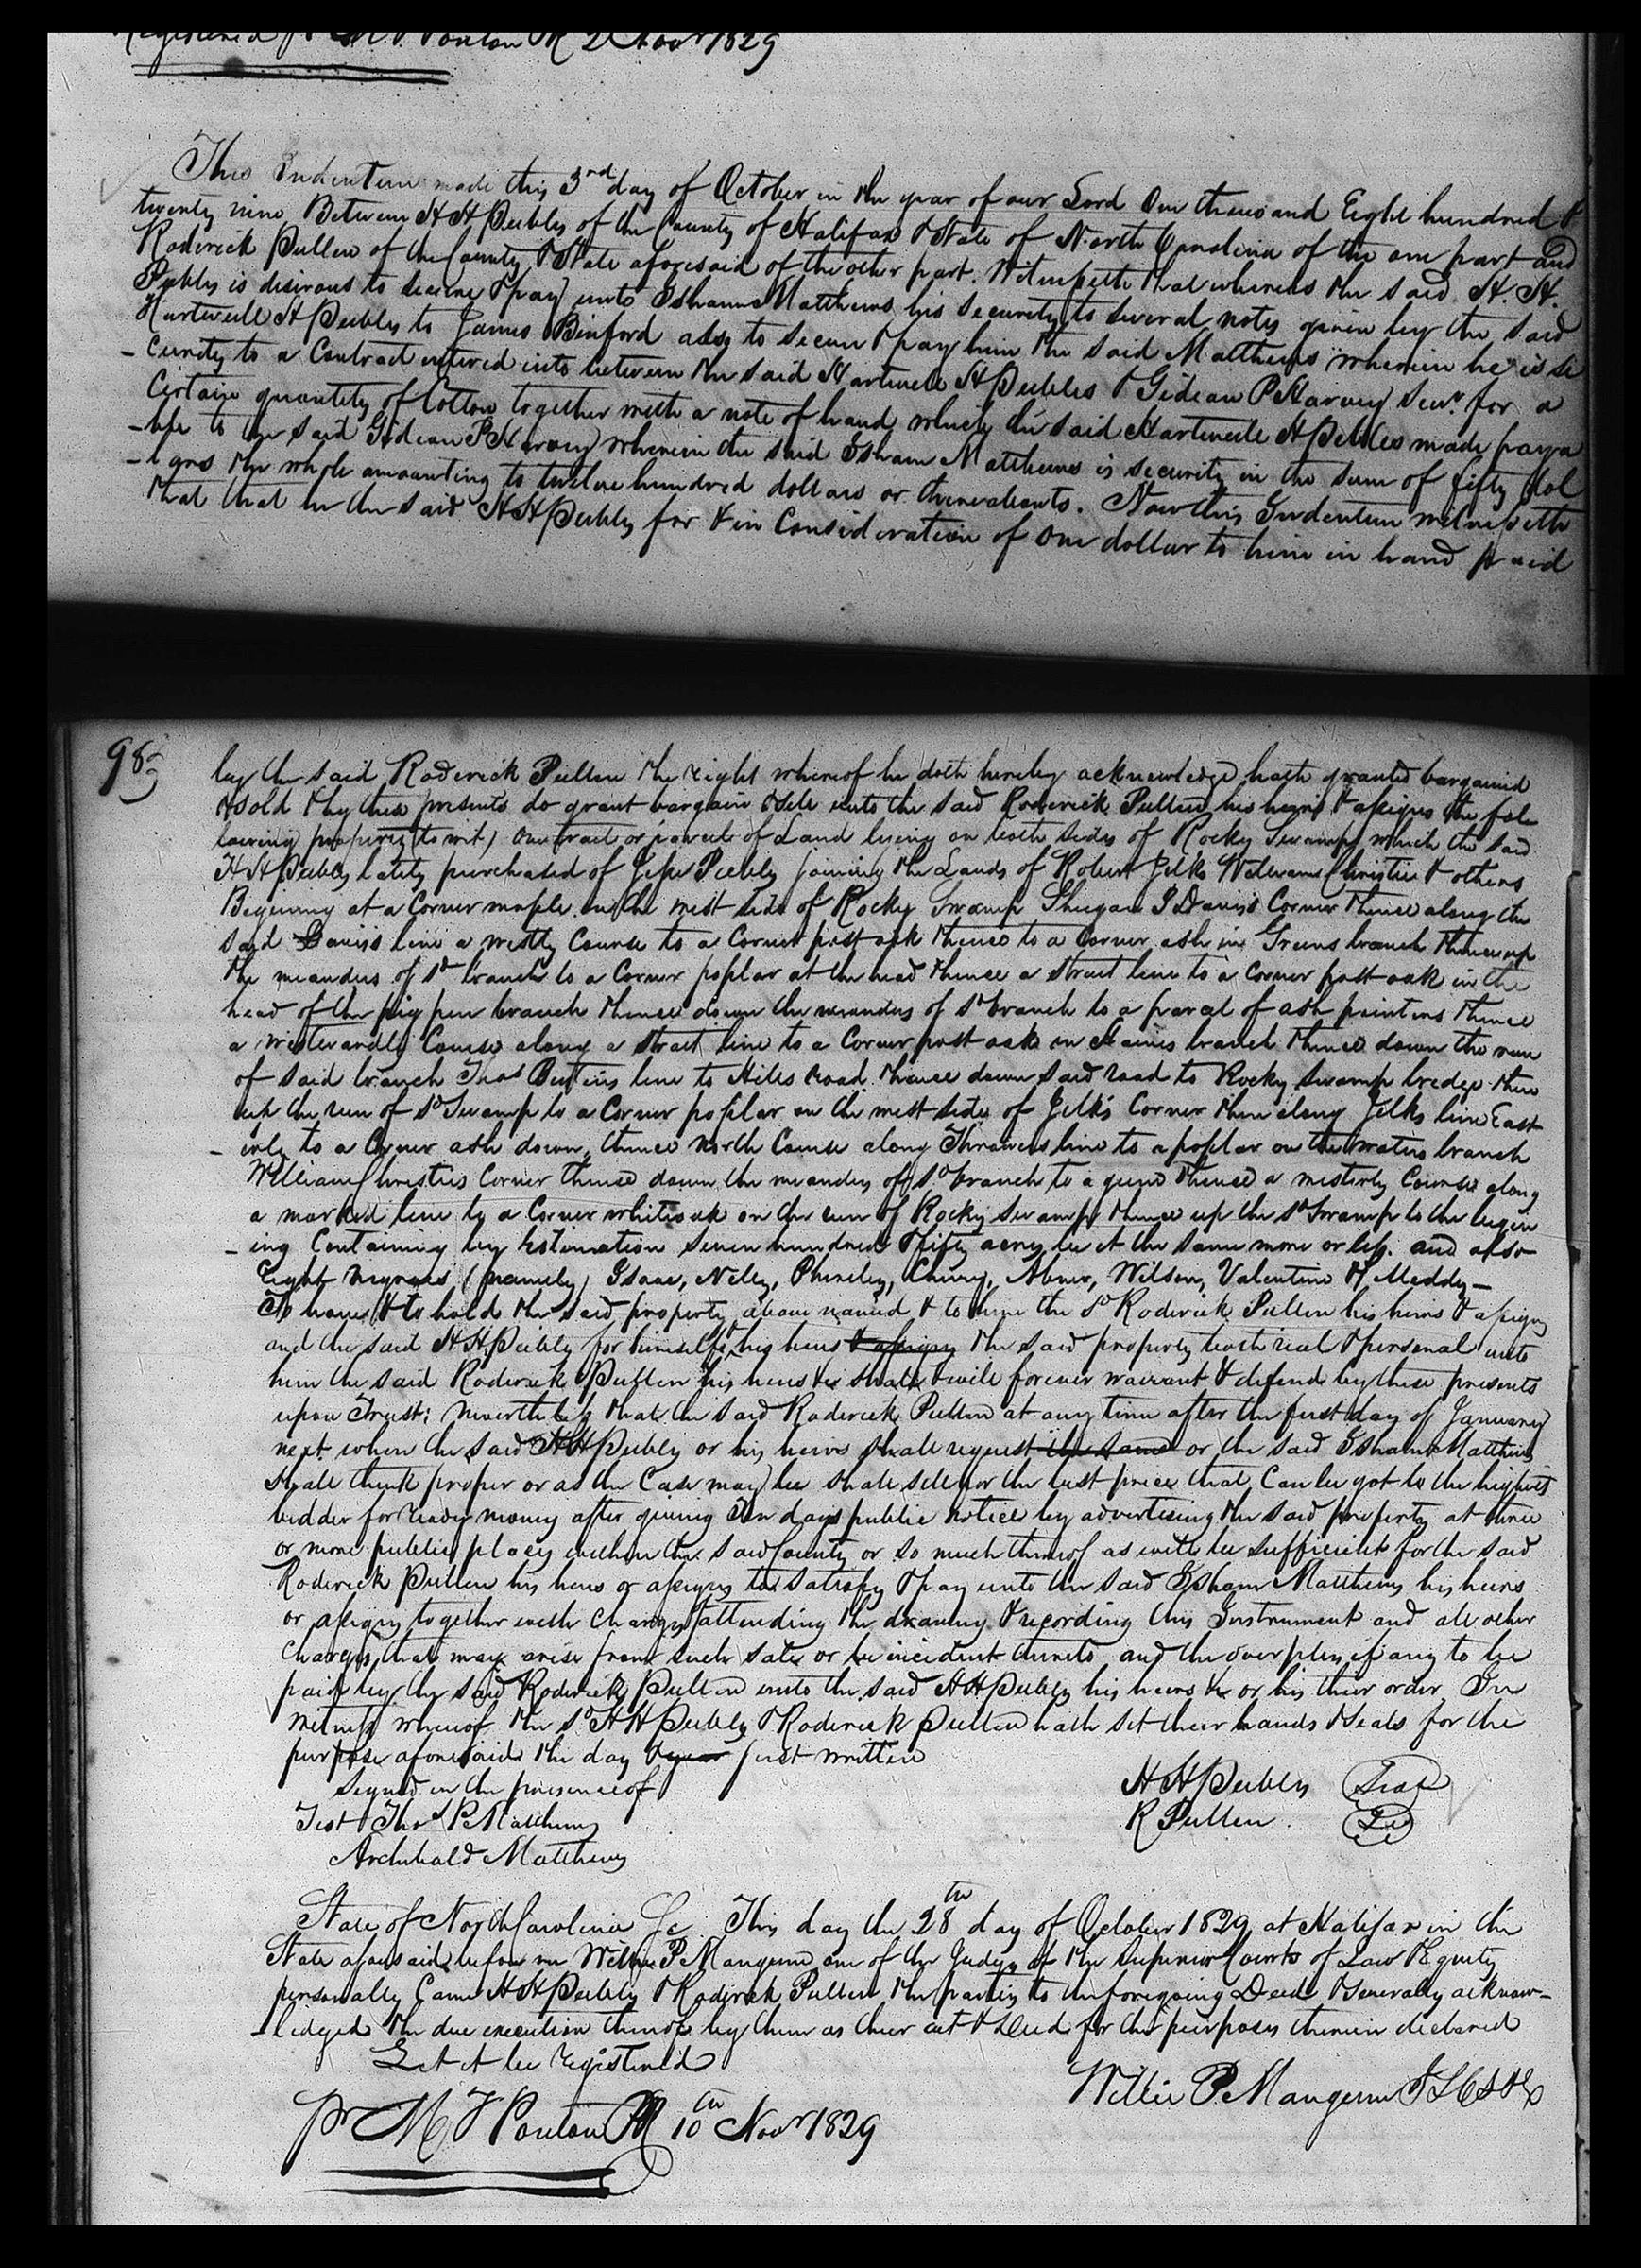 Registered pr M. F. Ponton PR 2 Novr 1829
This Indenture made this 3rd day of October in the year of our Lord One thousand Eight hundred &
twenty nine Between H H Peebles of the County of Halifax & State of North Carolina of the one part and
Roderick Pullen of the County & State aforesaid of the other part. Witnesseth that whereas the said H. H.
Peebles is desirous to secure & pay unto Isham Matthews his security to several notes given by the said
Hartwell H Peebles to James Binford also to secure & pay him the said Matthews wherein he is se
- curity to a Contract entered into between the said Hartwell H Peebles & Gidean P Harvey Senr. for a
Certain quantity of Cotton together with a note of hand which the said Hartwell H Peebles made paya
- ble to the said Gidean P Harvey wherein the said Isham Matthews is security in the sum of fifty dol
- lars the whole amounting to twelve hundred dollars or thereabouts. Now this Indenture witnesseth
that that he the said H H Peebles for & in Consideration of One dollar to him in hand paid
98
by the said Roderick Pullen the right whereof he doth hereby acknowledge hath granted bargained
& sold & by these presents do grant bargain & sell unto the said Roderick Pullen his heirs & assigns the fol
lowing property (to wit) One tract or parcel of Land lying on both sides of Rocky Swamp which the said
H H Peebles lately purchased of Jesse Peebles joining the Lands of Robert Jelks William Christie & others
Begining at a Corner maple on the west side of Rocky Swamp Davis's Corner thence along the
said Davis's line a westly Course to a Corner post oak thence to a Corner ash in Greens branch thence up
the meanders of sd branch to a Corner poplar at the head thence a strait line to a Corner post oak in the
head of the pig pen branch thence down the meanders of sd branch to a parcel of ash pointers thence
a westwardly Course along a strait line to a Corner post oak on Haines branch thence down the run
of said branch Thos line to Hills road thence down said road to Rocky Swamp bridge then
up the run of sd Swamp to a Corner poplar on the west side of Jelks Corner then along Jelks line East
- erly to a Corner ash down, thence North Course along Throwers line to a poplar on the branch
William Christies Corner thence down the meanders of sd branch to a gum thence a westerly Course along
a marked line to a Corner white oak on the run of Rocky Swamp thence up the sd Swamp to the begin
- ing Containing by Estimation Seven hundred & fifty acres be it the same more or less. and also
Eight negroes (namely) Isaac, Nelly, Cherry, Abner, Wilson, Valentine & Meddy -
To have & to hold the said property above named & to him the sd Roderick Pullen his heirs & assigns
and the said H H Peebles for himself & his heirs & assigns the said property both real & personal unto
him the said Roderick Pullen his heirs &c shall & will forever warrant & defend by these presents
upon Trust; Nevertheless that the said Roderick Pullen at any time after the first day of January
next when the said H H Peebles or his heirs shall request the same or the said Isham Matthews
shall think proper or as the Case may be shall sell for the best price that Can be got to the highest
bidder for ready money after giving Ten days public notice by advertising the said property at three
or more public places within the said County or so much thereof as will be sufficient for the said
Roderick Pullen his heirs or assigns to satisfy & pay unto the said Isham Matthews his heirs
or assigns together with Charges attending the drawing & recording this Instrument and all other
Charges that may arise from such sale or be incident thereto and the overplus if any to be
paid by the said Roderick Pullen unto the said H H Peebles his heirs &c or his their order In
Witness whereof the sd H H Peebles & Roderick Pullen hath set their hands & seals for the
purpose aforesaid the day & year first written
Signed in the presence of
H H Peebles Seal
Test Thos P Matthews
R Pullen
Archibald Matthews
State of North Carolina Sc This day the 28th day of October 1829 at Halifax in the
State aforesaid before me Willie P Mangum one of the Judges of the Superior Courts of Law & Equity
personally Came H H Peebles & Roderick Pullen the parties to the foregoing Deed & severally acknow-
- ledged the due execution thereof by them as their act & deed for the purposes therein declared
Let it be registered
Willie P. Mangum
pr M F Ponton PR 10th Novr 1829